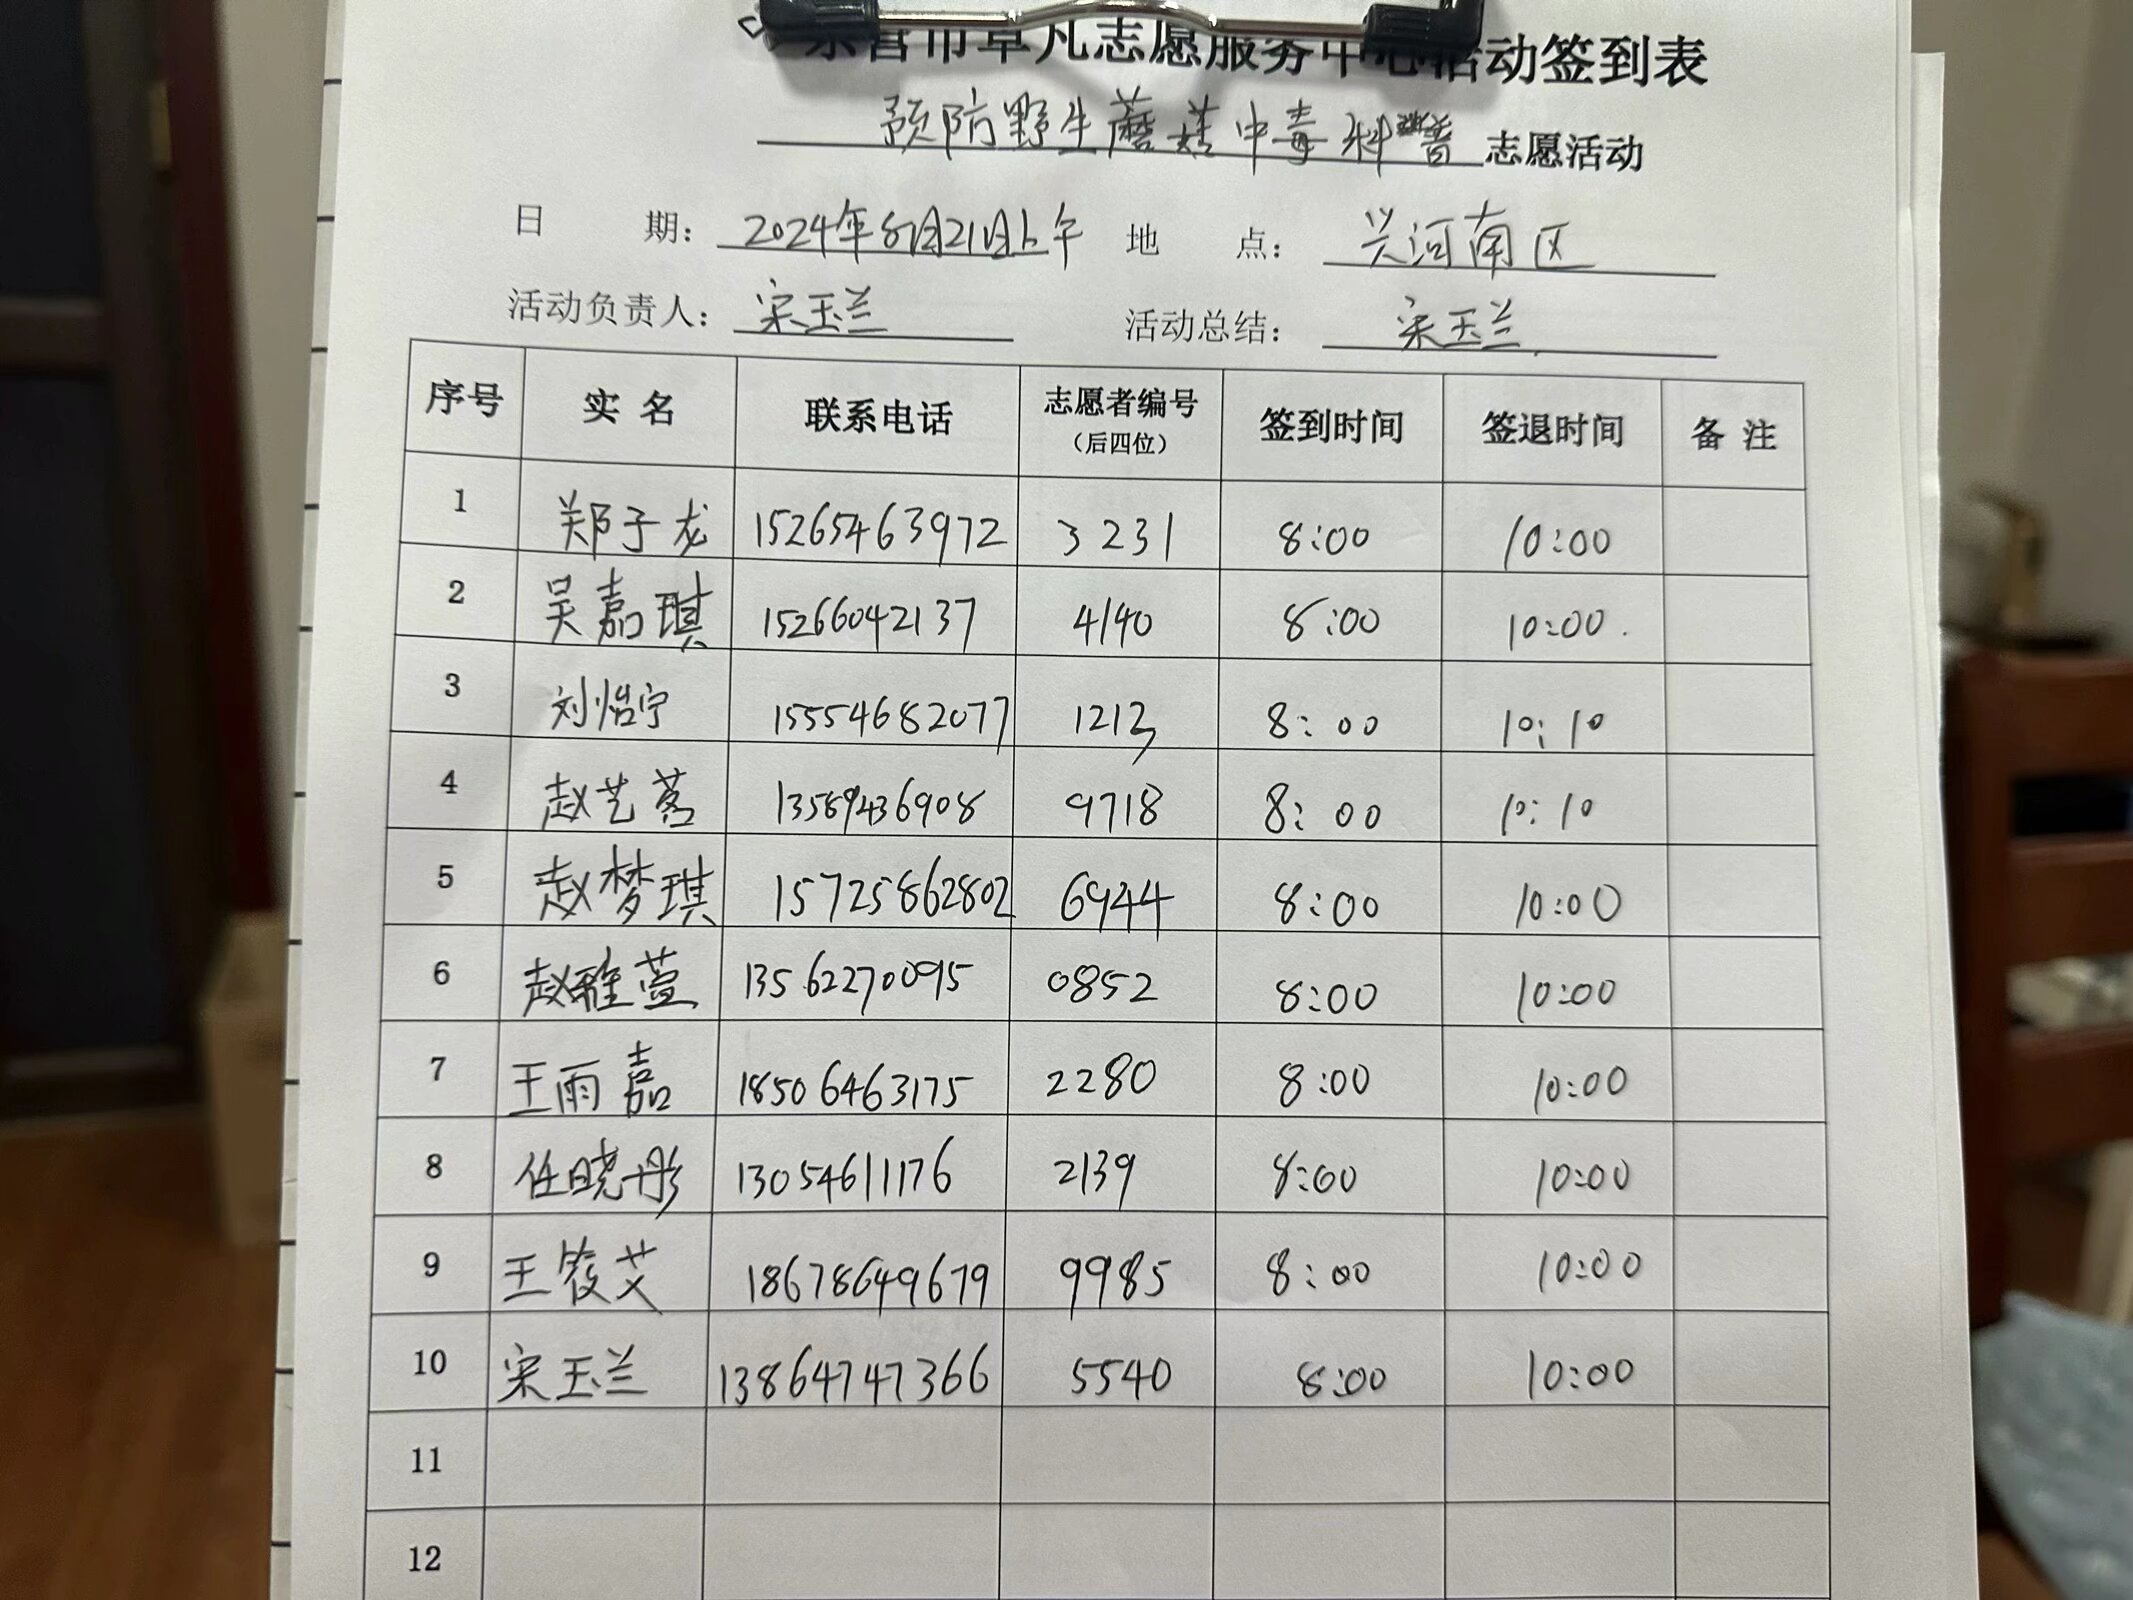 东营市卓凡志愿服务中心活动签到表
预防野生蘑菇中毒科普 志愿活动
日 期：2024年8月21日上午 地 点：兴河南区
活动负责人：宋玉兰 活动总结：宋玉兰
序号 实 名 联系电话 志愿者编号（后四位） 签到时间 签退时间 备 注
1 郑子龙 15265463972 3231 8:00 10:00
2 吴嘉琪 15266042137 4140 8:00 10:00
3 刘怡宁 15554682077 1213 8:00 10:10
4 赵艺茗 13589436908 9718 8:00 10:10
5 赵梦琪 15725862802 6944 8:00 10:00
6 赵雅萱 13562270095 0852 8:00 10:00
7 王雨嘉 18506463175 2280 8:00 10:00
8 任晓彤 13054611176 2139 8:00 10:00
9 王筱艾 18678649679 9985 8:00 10:00
10 宋玉兰 13864747366 5540 8:00 10:00
11
12